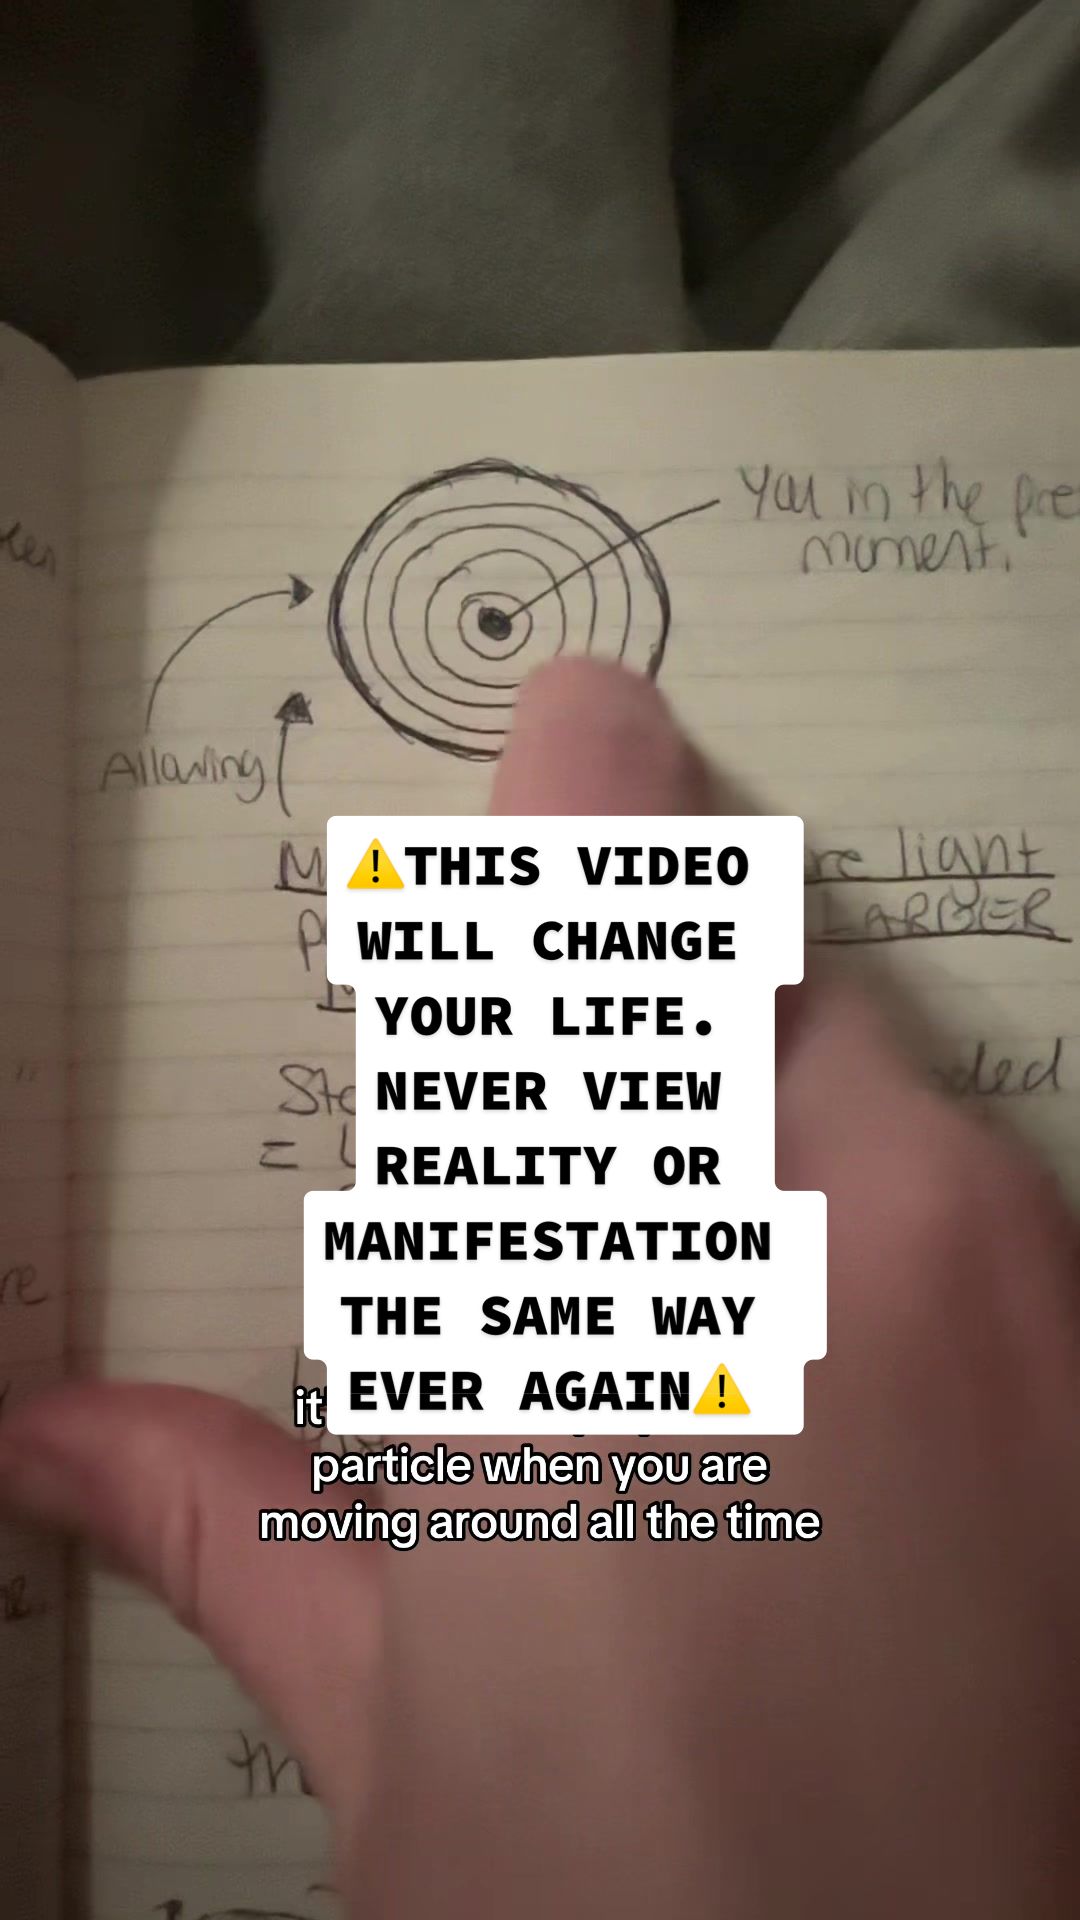 You in the pre
moment.
Allowing
M
re light
P
LARGER
⚠️THIS VIDEO
WILL CHANGE
YOUR LIFE.
NEVER VIEW
REALITY OR
MANIFESTATION
THE SAME WAY
EVER AGAIN⚠️
Ste
ded
= L
re
it
particle when you are
moving around all the time
th